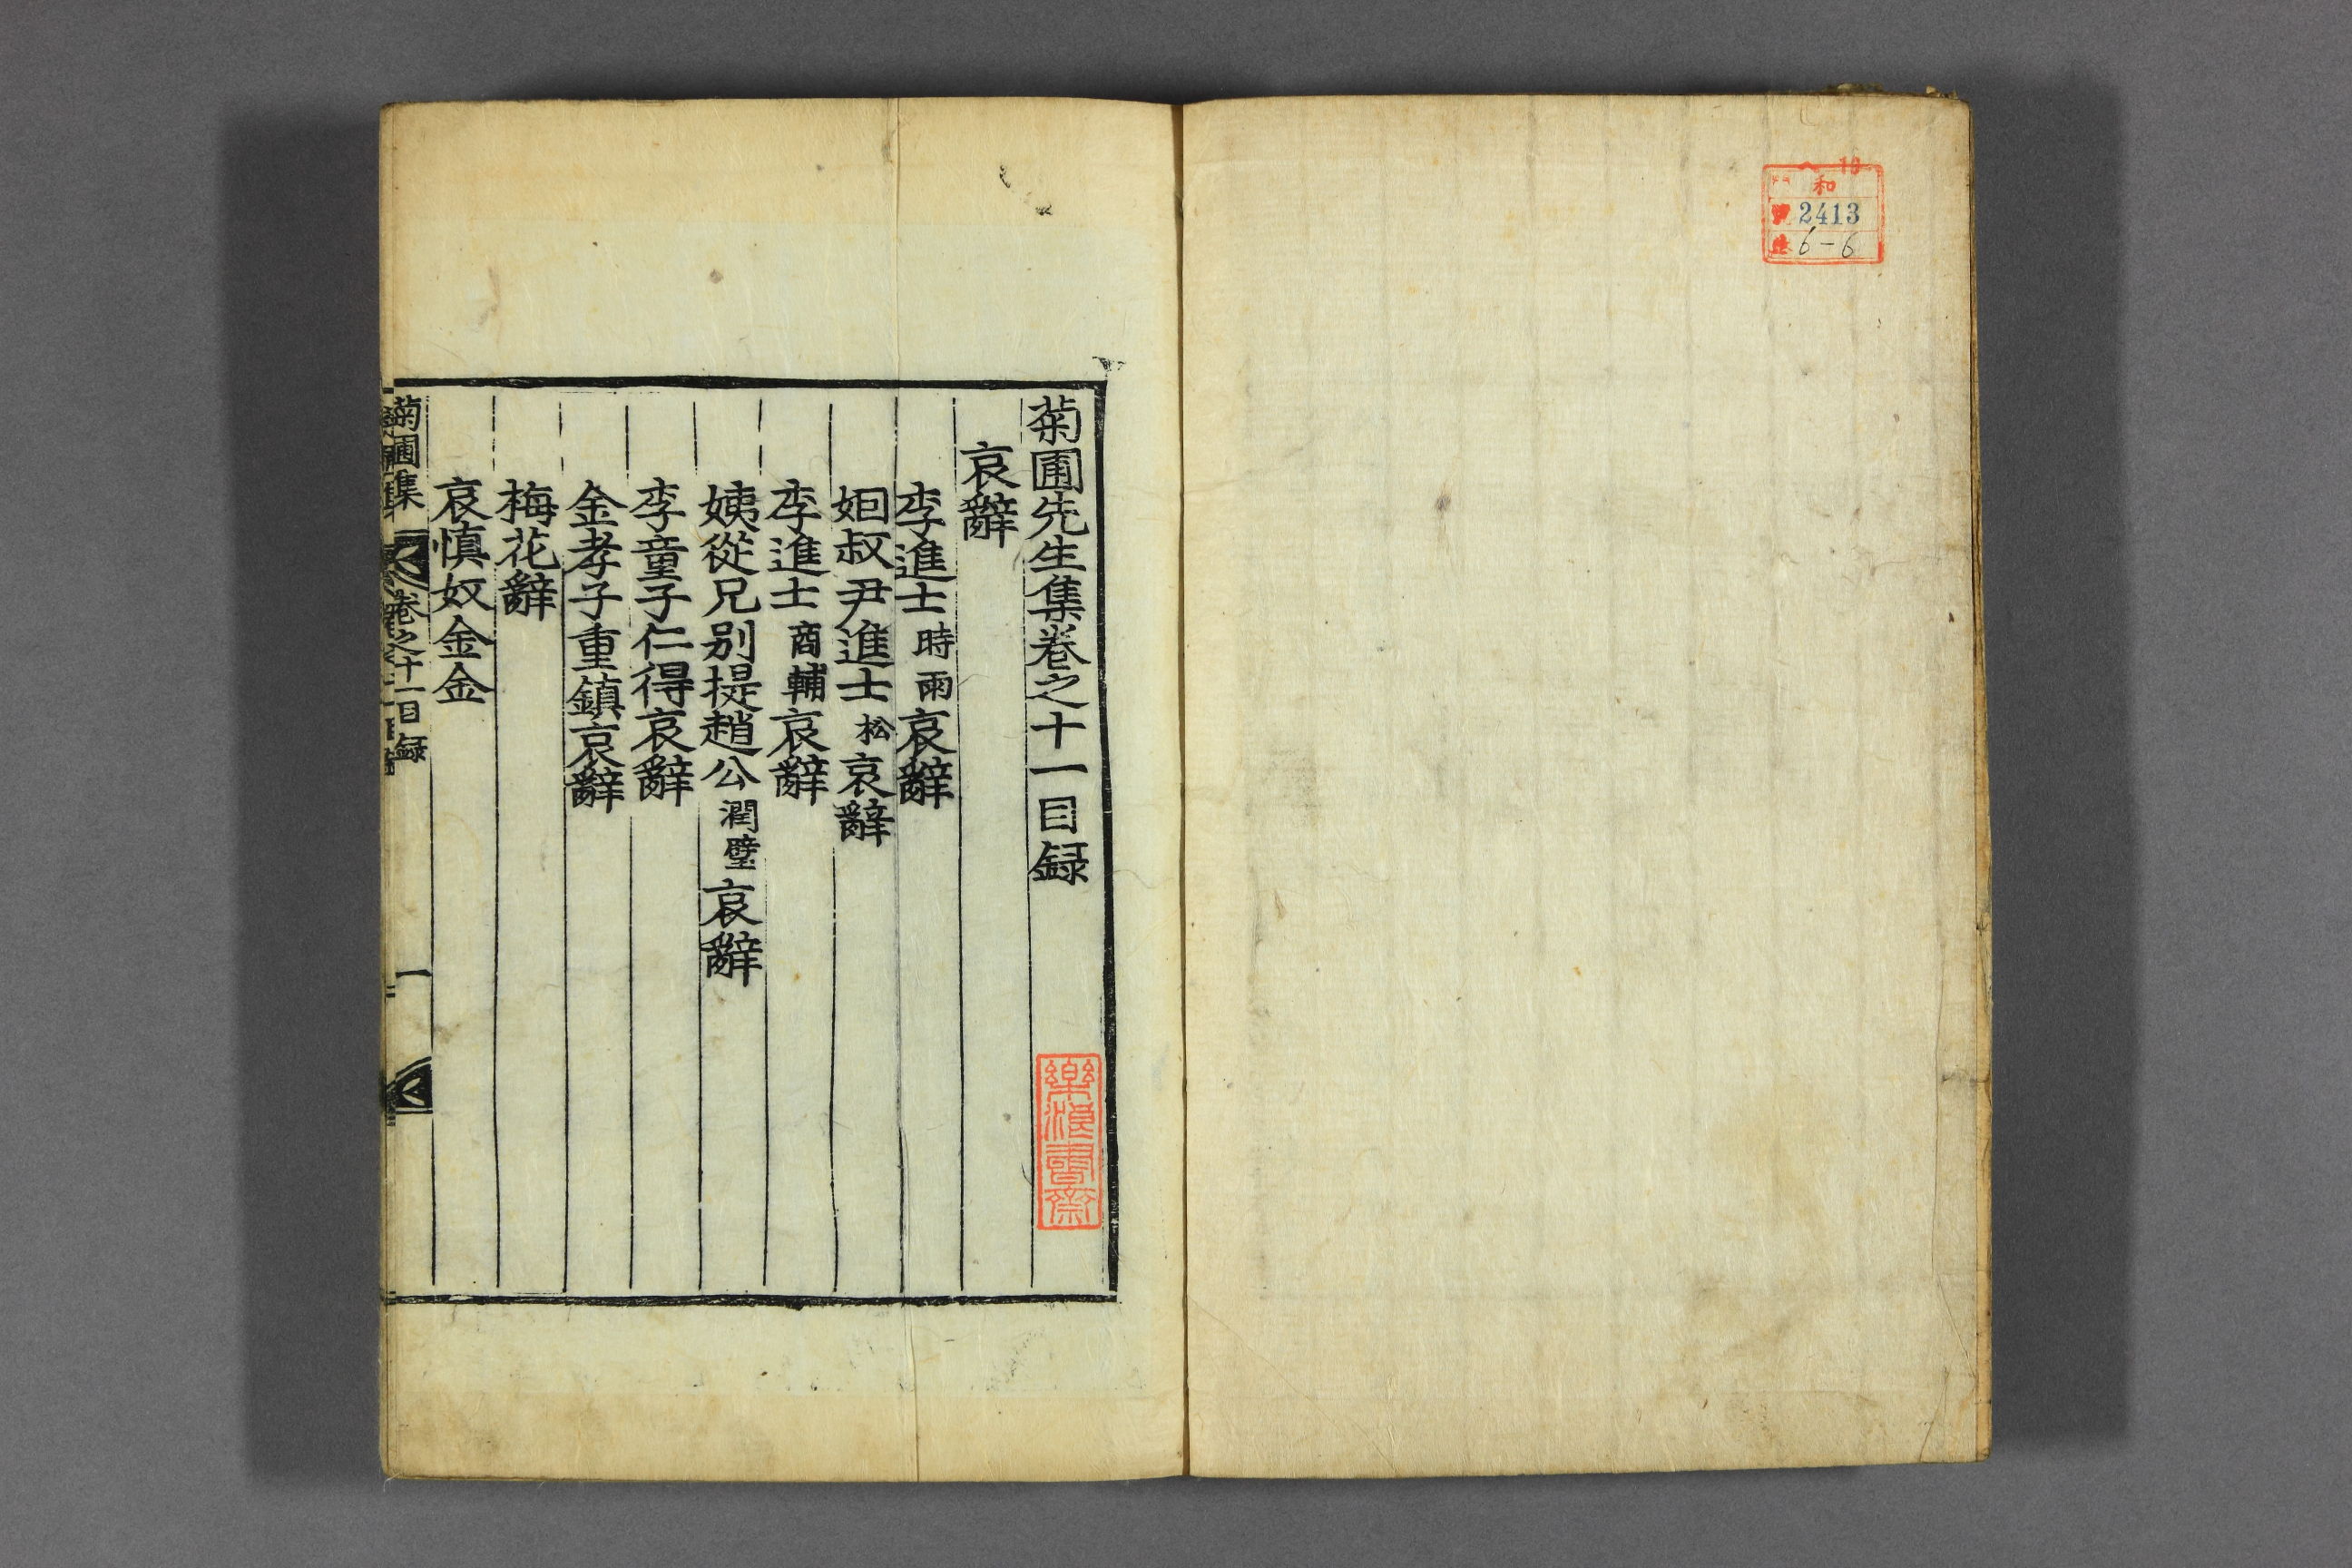 和
2413
6-6
菊圃先生集卷之十一目録
哀辭
李進士時雨哀辭
姮叔尹進士松哀辭
李進士商輔哀辭
姨從兄别提趙公潤璧哀辭
李童子仁得哀辭
金孝子重鎮哀辭
梅花辭
哀愼奴金金
菊圃集
卷之十一目録
一
樂浪書齋